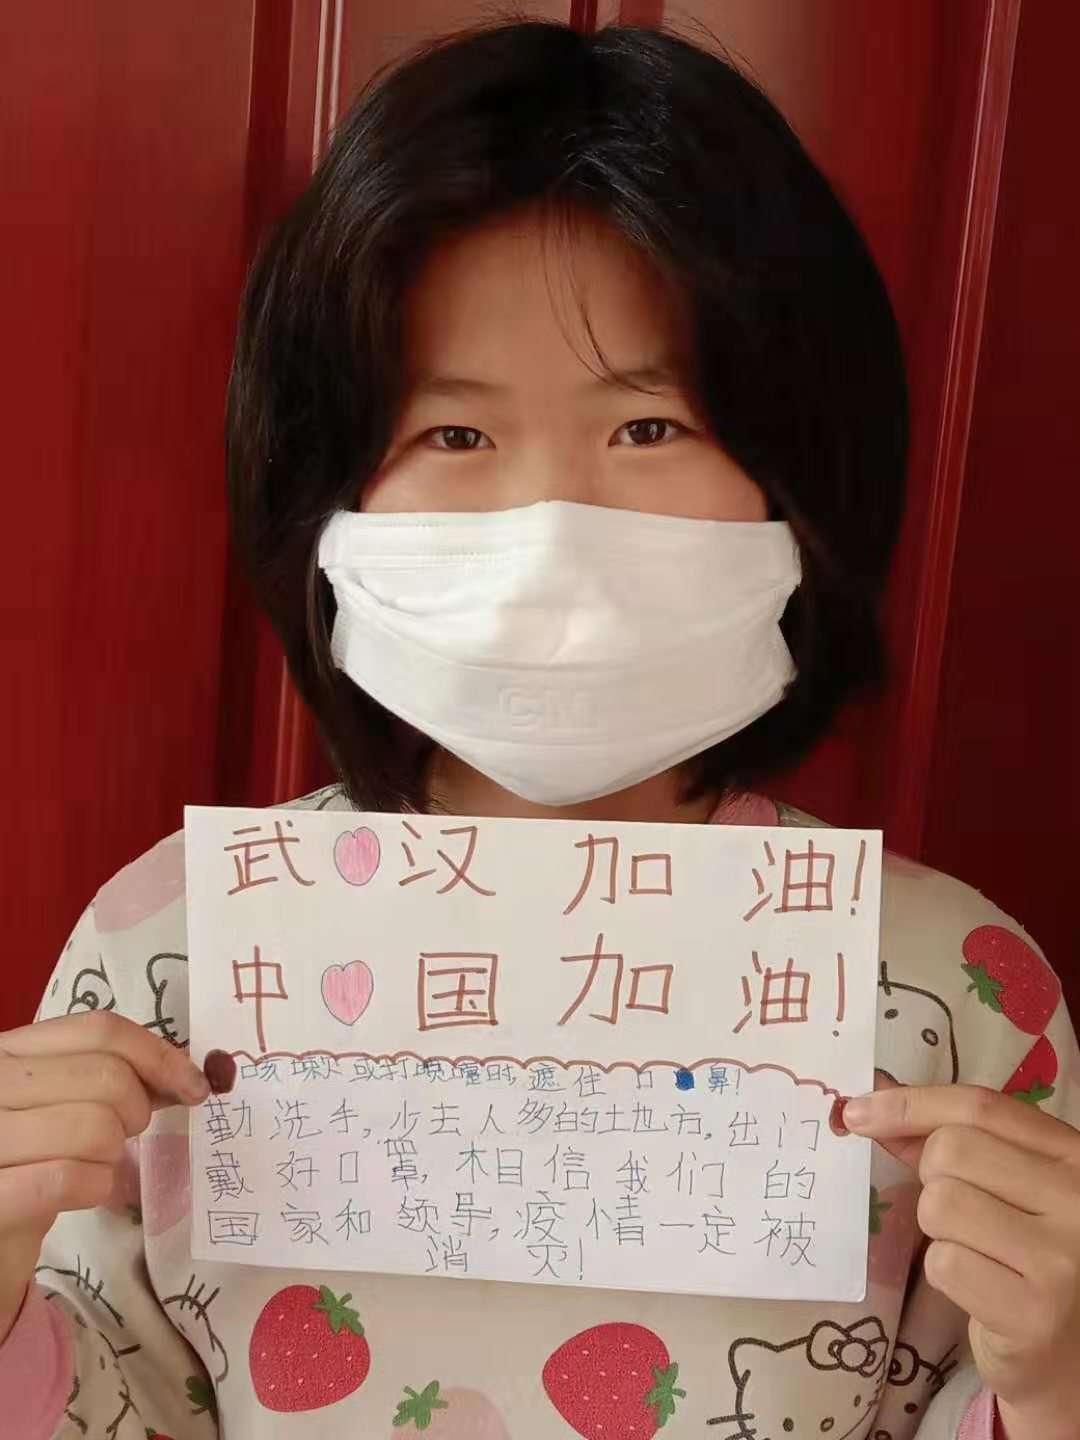 武汉加油！
中国加油！
咳嗽或打喷嚏时，遮住口鼻！
勤洗手，少去人多的土地方，出门
戴好口罩，相信我们的
国家和领导，疫情一定被
消灭！
CM